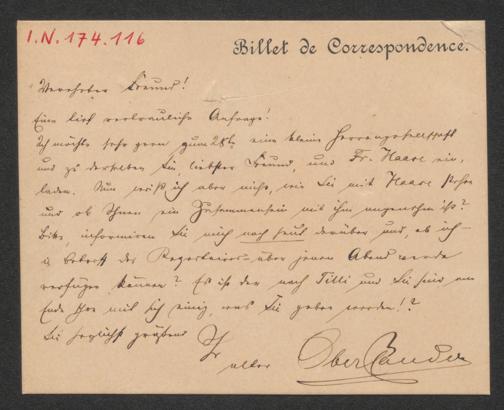 I.N. 174.116
Billet de Correspondence.
Verehrter Freund!
Eine vertrauliche Anfrage!
Ich möchte sehr gern zum 28t eine kleine Herrengesellschaft
und zu derselben Sie, liebster Freund, und Fr. Haase ein-
laden. Nun weiß ich aber nicht, wie Sie mit Haase stehen
und ob Ihnen ein Zusammensein mit ihm angenehm ist?
Bitte, informiren Sie mich noch heut darüber und, ob ich –
in Betreff des Repertoirs – über jenen Abend werde
verfügen können? Es ist der nach Tilli und Sie sind am
Ende schon mit sich einig, was Sie geben werden!?
Sie herzlichst grüßend Ihr
alter Oberländer